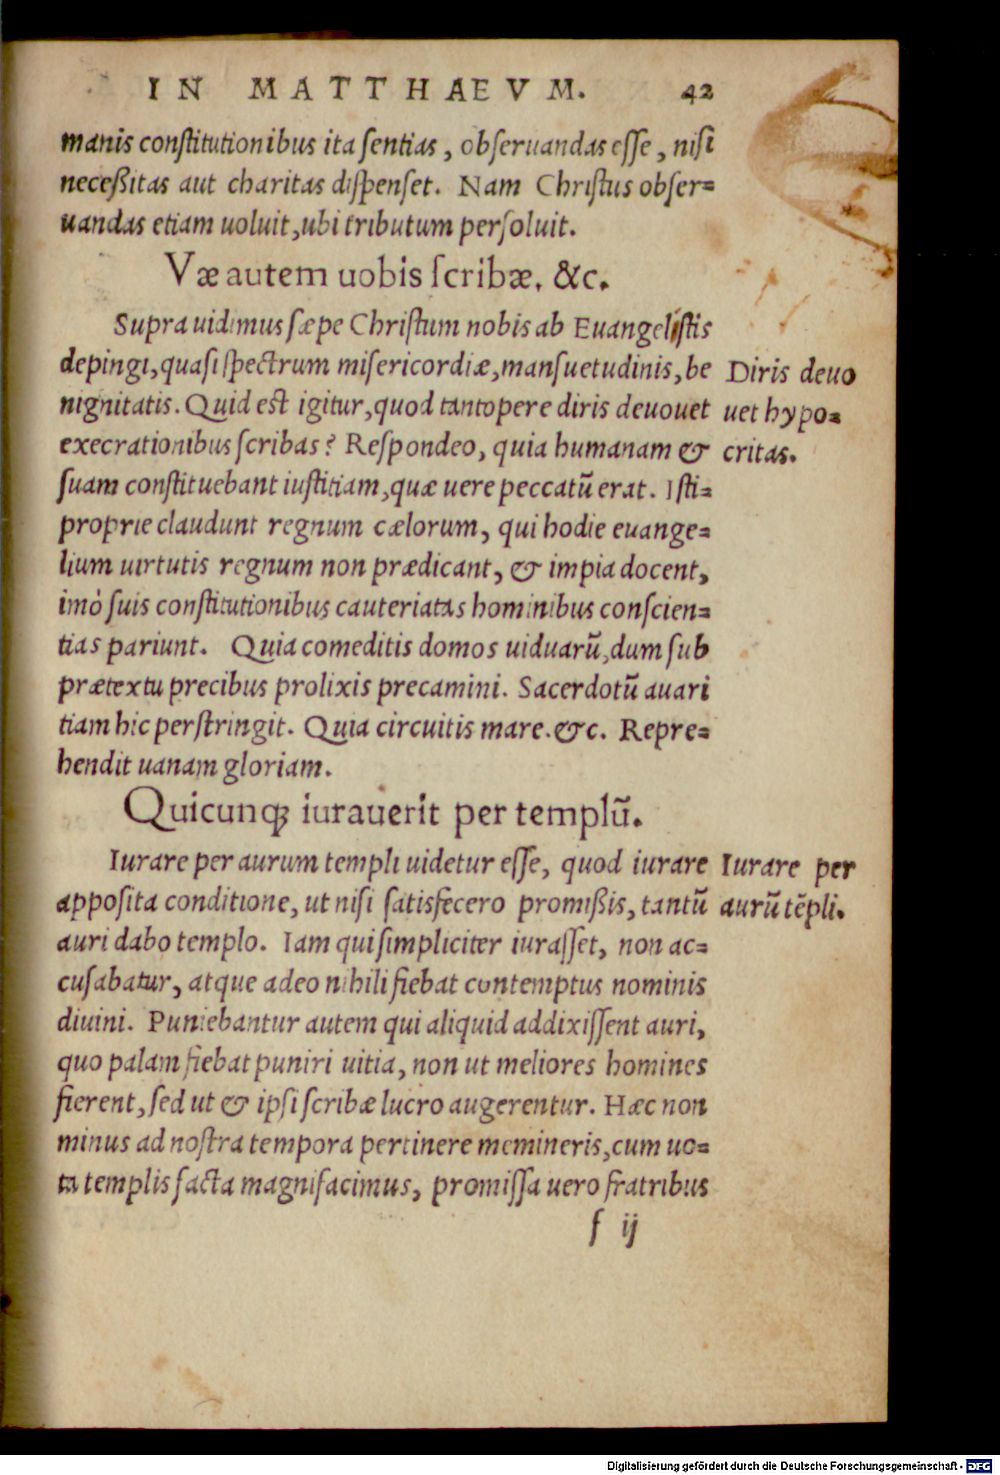 IN MATTHAEVM. 42
manis constitutionibus ita sentias, obseruandas esse, nisi
neceßitas aut charitas dispenset. Nam Christus obser=
uandas etiam uoluit, ubi tributum persoluit.
Væ autem uobis scribæ, &c.
Supra uidimus sæpe Christum nobis ab Euangelistis
depingi, quasi spectrum misericordiæ, mansuetudinis, be
nignitatis. Quid est igitur, quod tantopere diris deuouet
execrationibus scribas? Respondeo, quia humanam &
suam constituebant iustitiam, quæ uere peccatũ erat. Isti=
proprie claudunt regnum cælorum, qui hodie euange=
lium uirtutis regnum non prædicant, & impia docent,
imò suis constitutionibus cauteriatas hominibus conscien=
tias pariunt. Quia comeditis domos uiduarũ, dum sub
prætextu precibus prolixis precamini. Sacerdotũ auari
tiam hic perstringit. Quia circuitis mare. &c. Repre=
hendit uanam gloriam.
Diris deuo
uet hypo=
critas.
Quicunq; iurauerit per templũ.
Iurare per aurum templi uidetur esse, quod iurare
apposita conditione, ut nisi satisfecero promißis, tantũ
auri dabo templo. Iam qui simpliciter iurasset, non ac=
cusabatur, atque adeo nihili fiebat contemptus nominis
diuini. Puniebantur autem qui aliquid addixissent auri,
quo palam fiebat puniri uitia, non ut meliores homines
fierent, sed ut & ipsi scribæ lucro augerentur. Hæc non
minus ad nostra tempora pertinere memineris, cum uo=
ta templis facta magnifacimus, promissa uero fratribus
Iurare per
aurũ tẽpli.
f ij
Digitalisierung gefördert durch die Deutsche Forschungsgemeinschaft - DFG